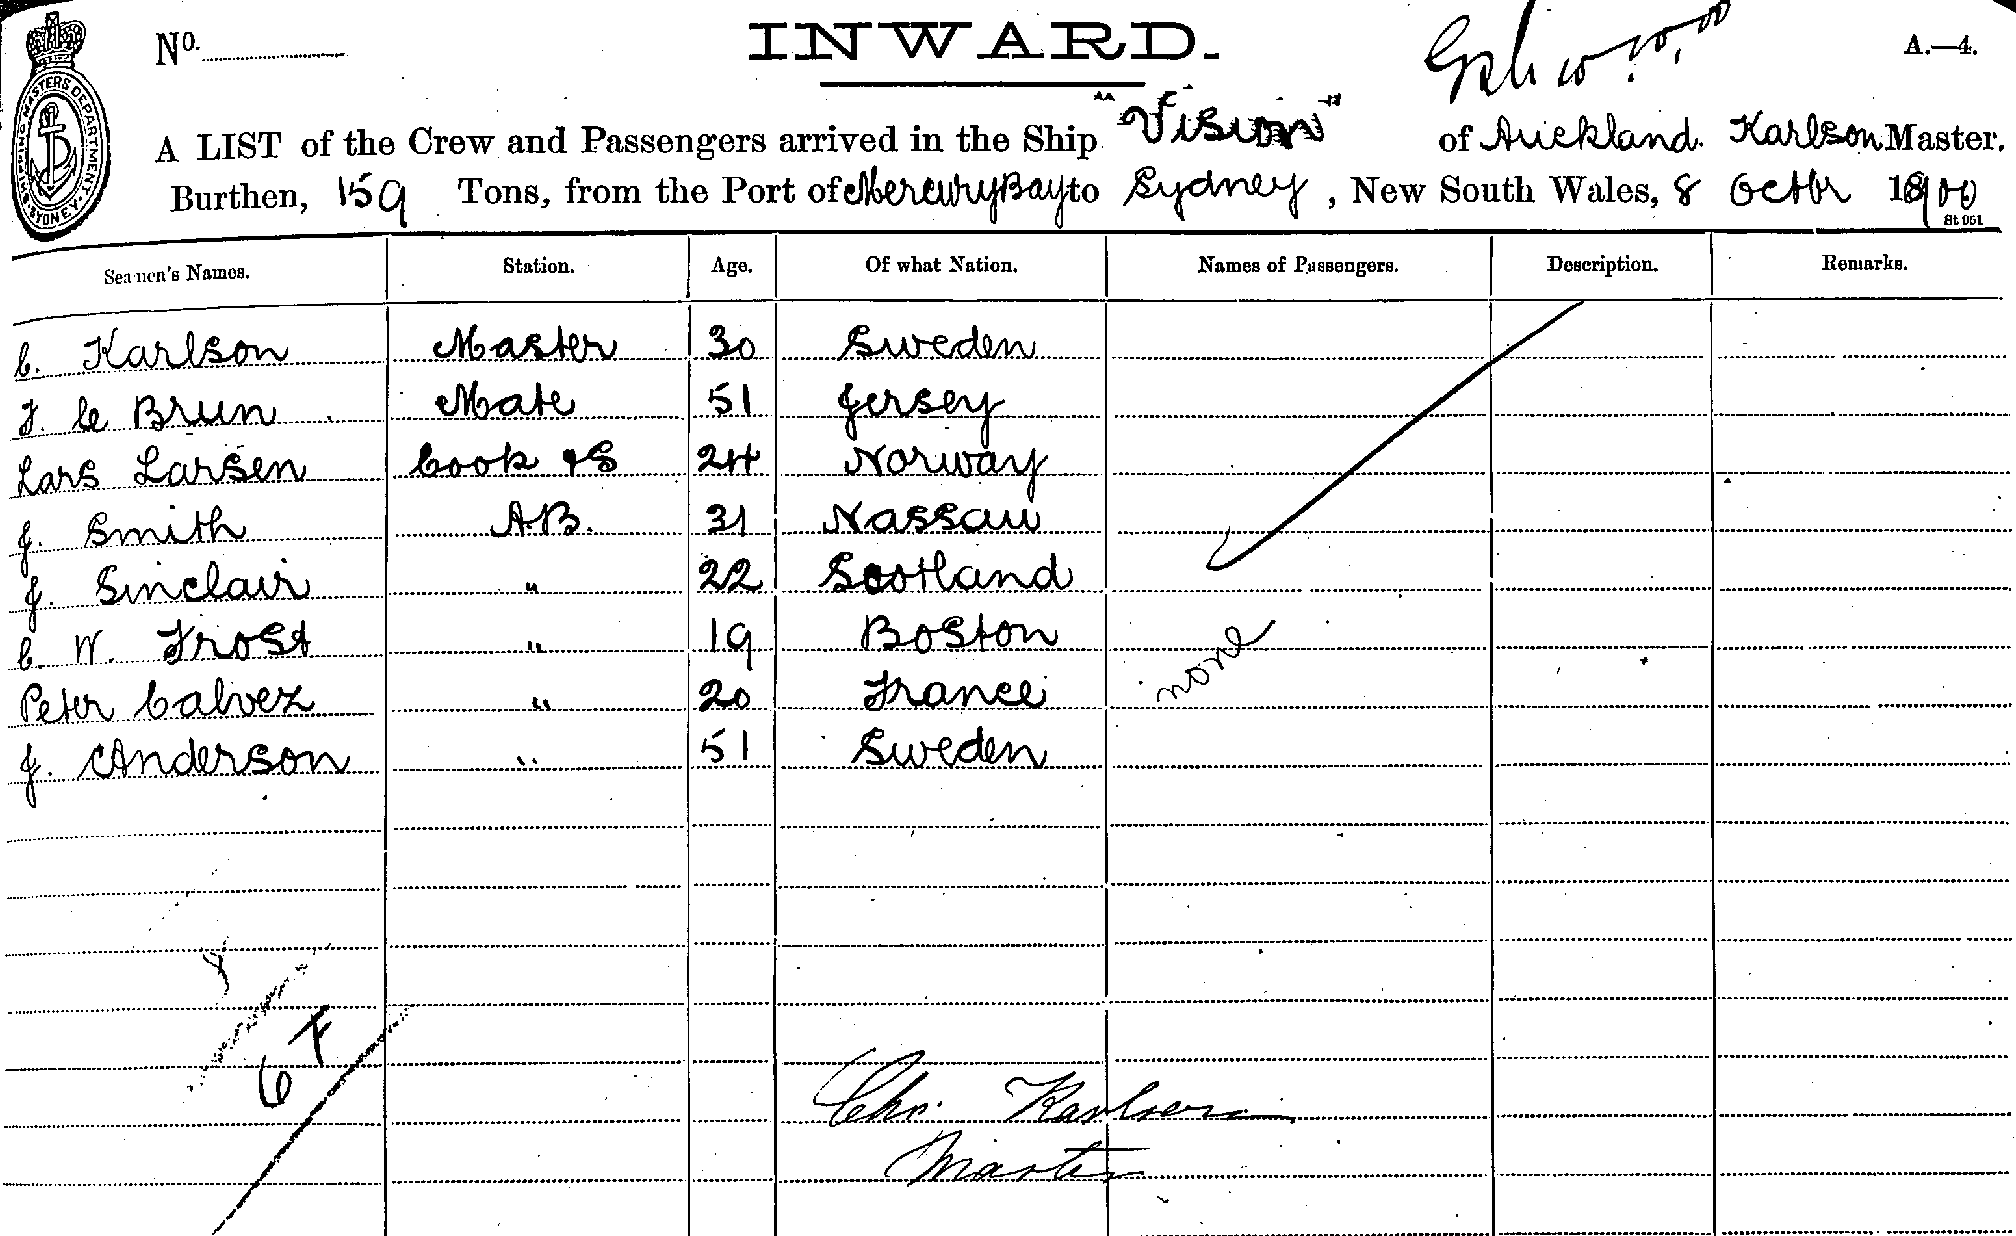 No. INWARD. A.—4.
A LIST of the Crew and Passengers arrived in the Ship "Vision" of Auckland. Karlson Master.
Burthen, 159 Tons, from the Port of Mercury Bay to Sydney, New South Wales, 8 Octbr 1900
St 951
SHIPPING MASTERS DEPARTMENT N.S.W. SYDNEY
Seamen's Names. Station. Age. Of what Nation. Names of Passengers. Description. Remarks.
C. Karlson Master 30 Sweden
F. le Brun Mate 51 Jersey
Lars Larsen Cook & S 24 Norway
J. Smith AB. 31 Nassau
J. Sinclair " 22 Scotland
C. W. Frost " 19 Boston none
Peter Calvez " 20 France
J. Anderson " 51 Sweden
6
Chr. Karlson
Master